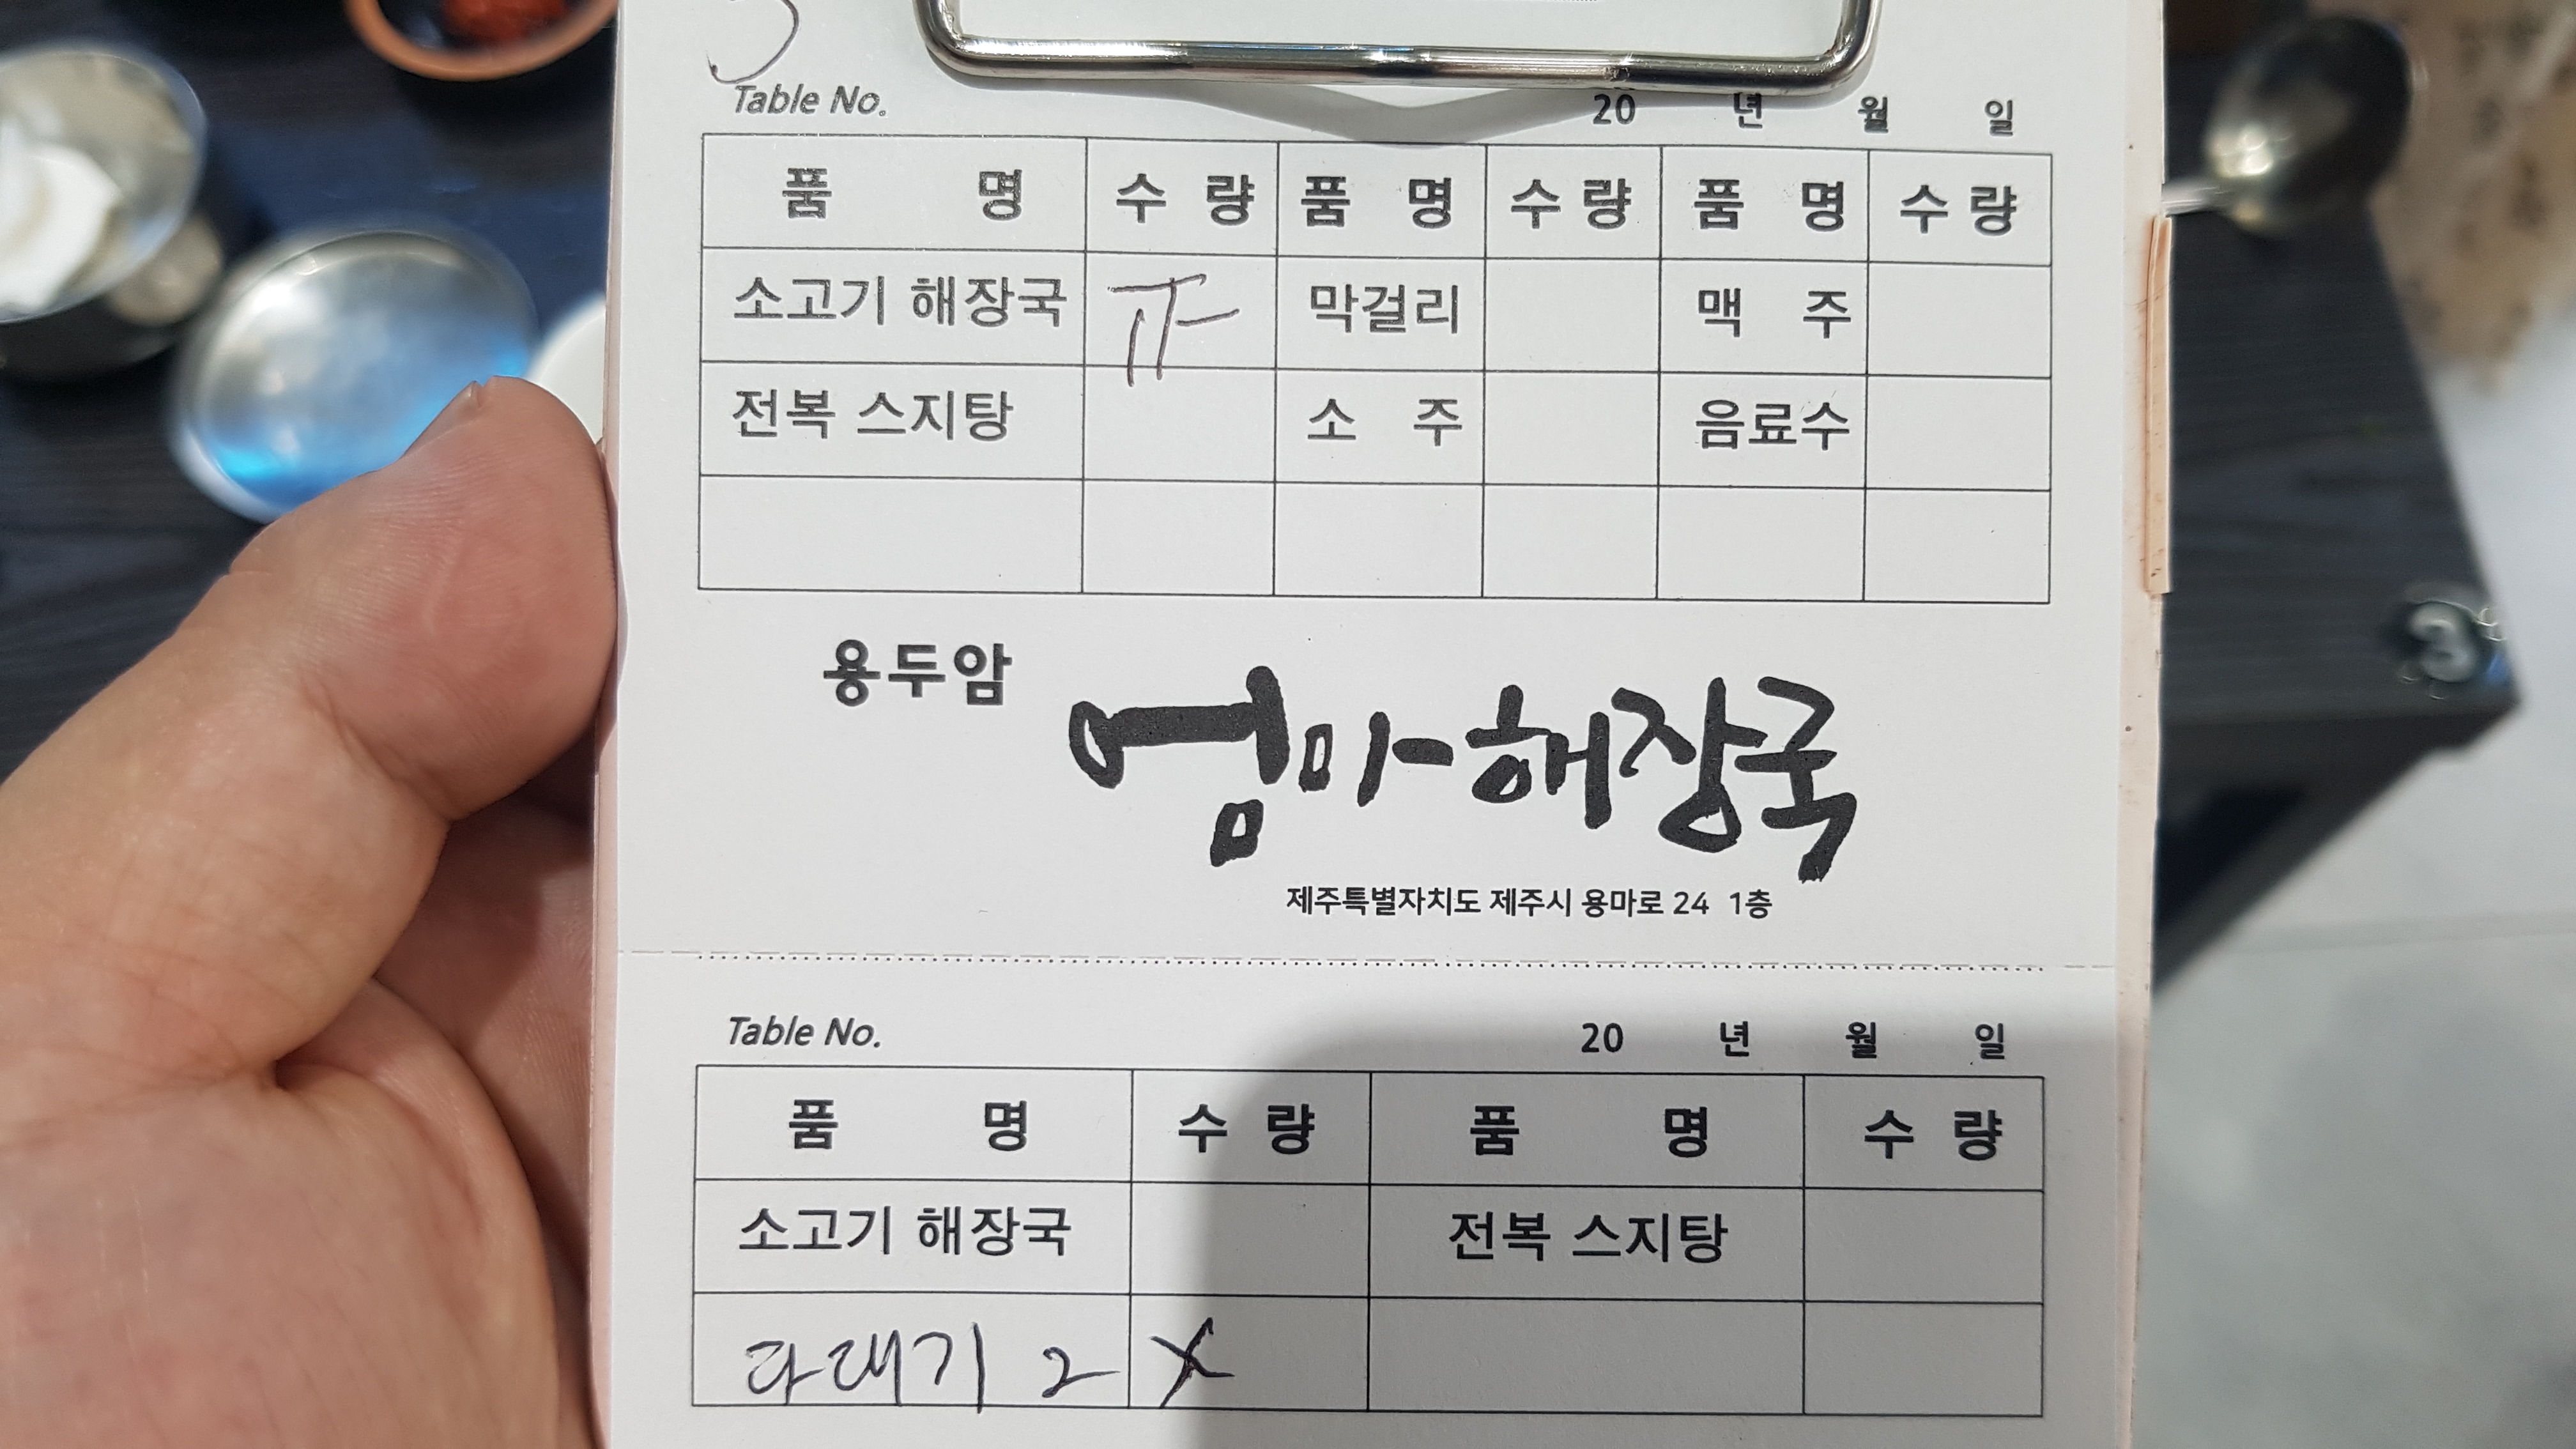 Table No. 20 년 월 일
품 명 수 량 품 명 수 량 품 명 수 량
소고기 해장국 막걸리 맥 주
전복 스지탕 소 주 음료수
용두암
엄마해장국
제주특별자치도 제주시 용마로 24 1층
Table No. 20 년 월 일
품 명 수 량 품 명 수 량
소고기 해장국 전복 스지탕
다대기 2 X
3